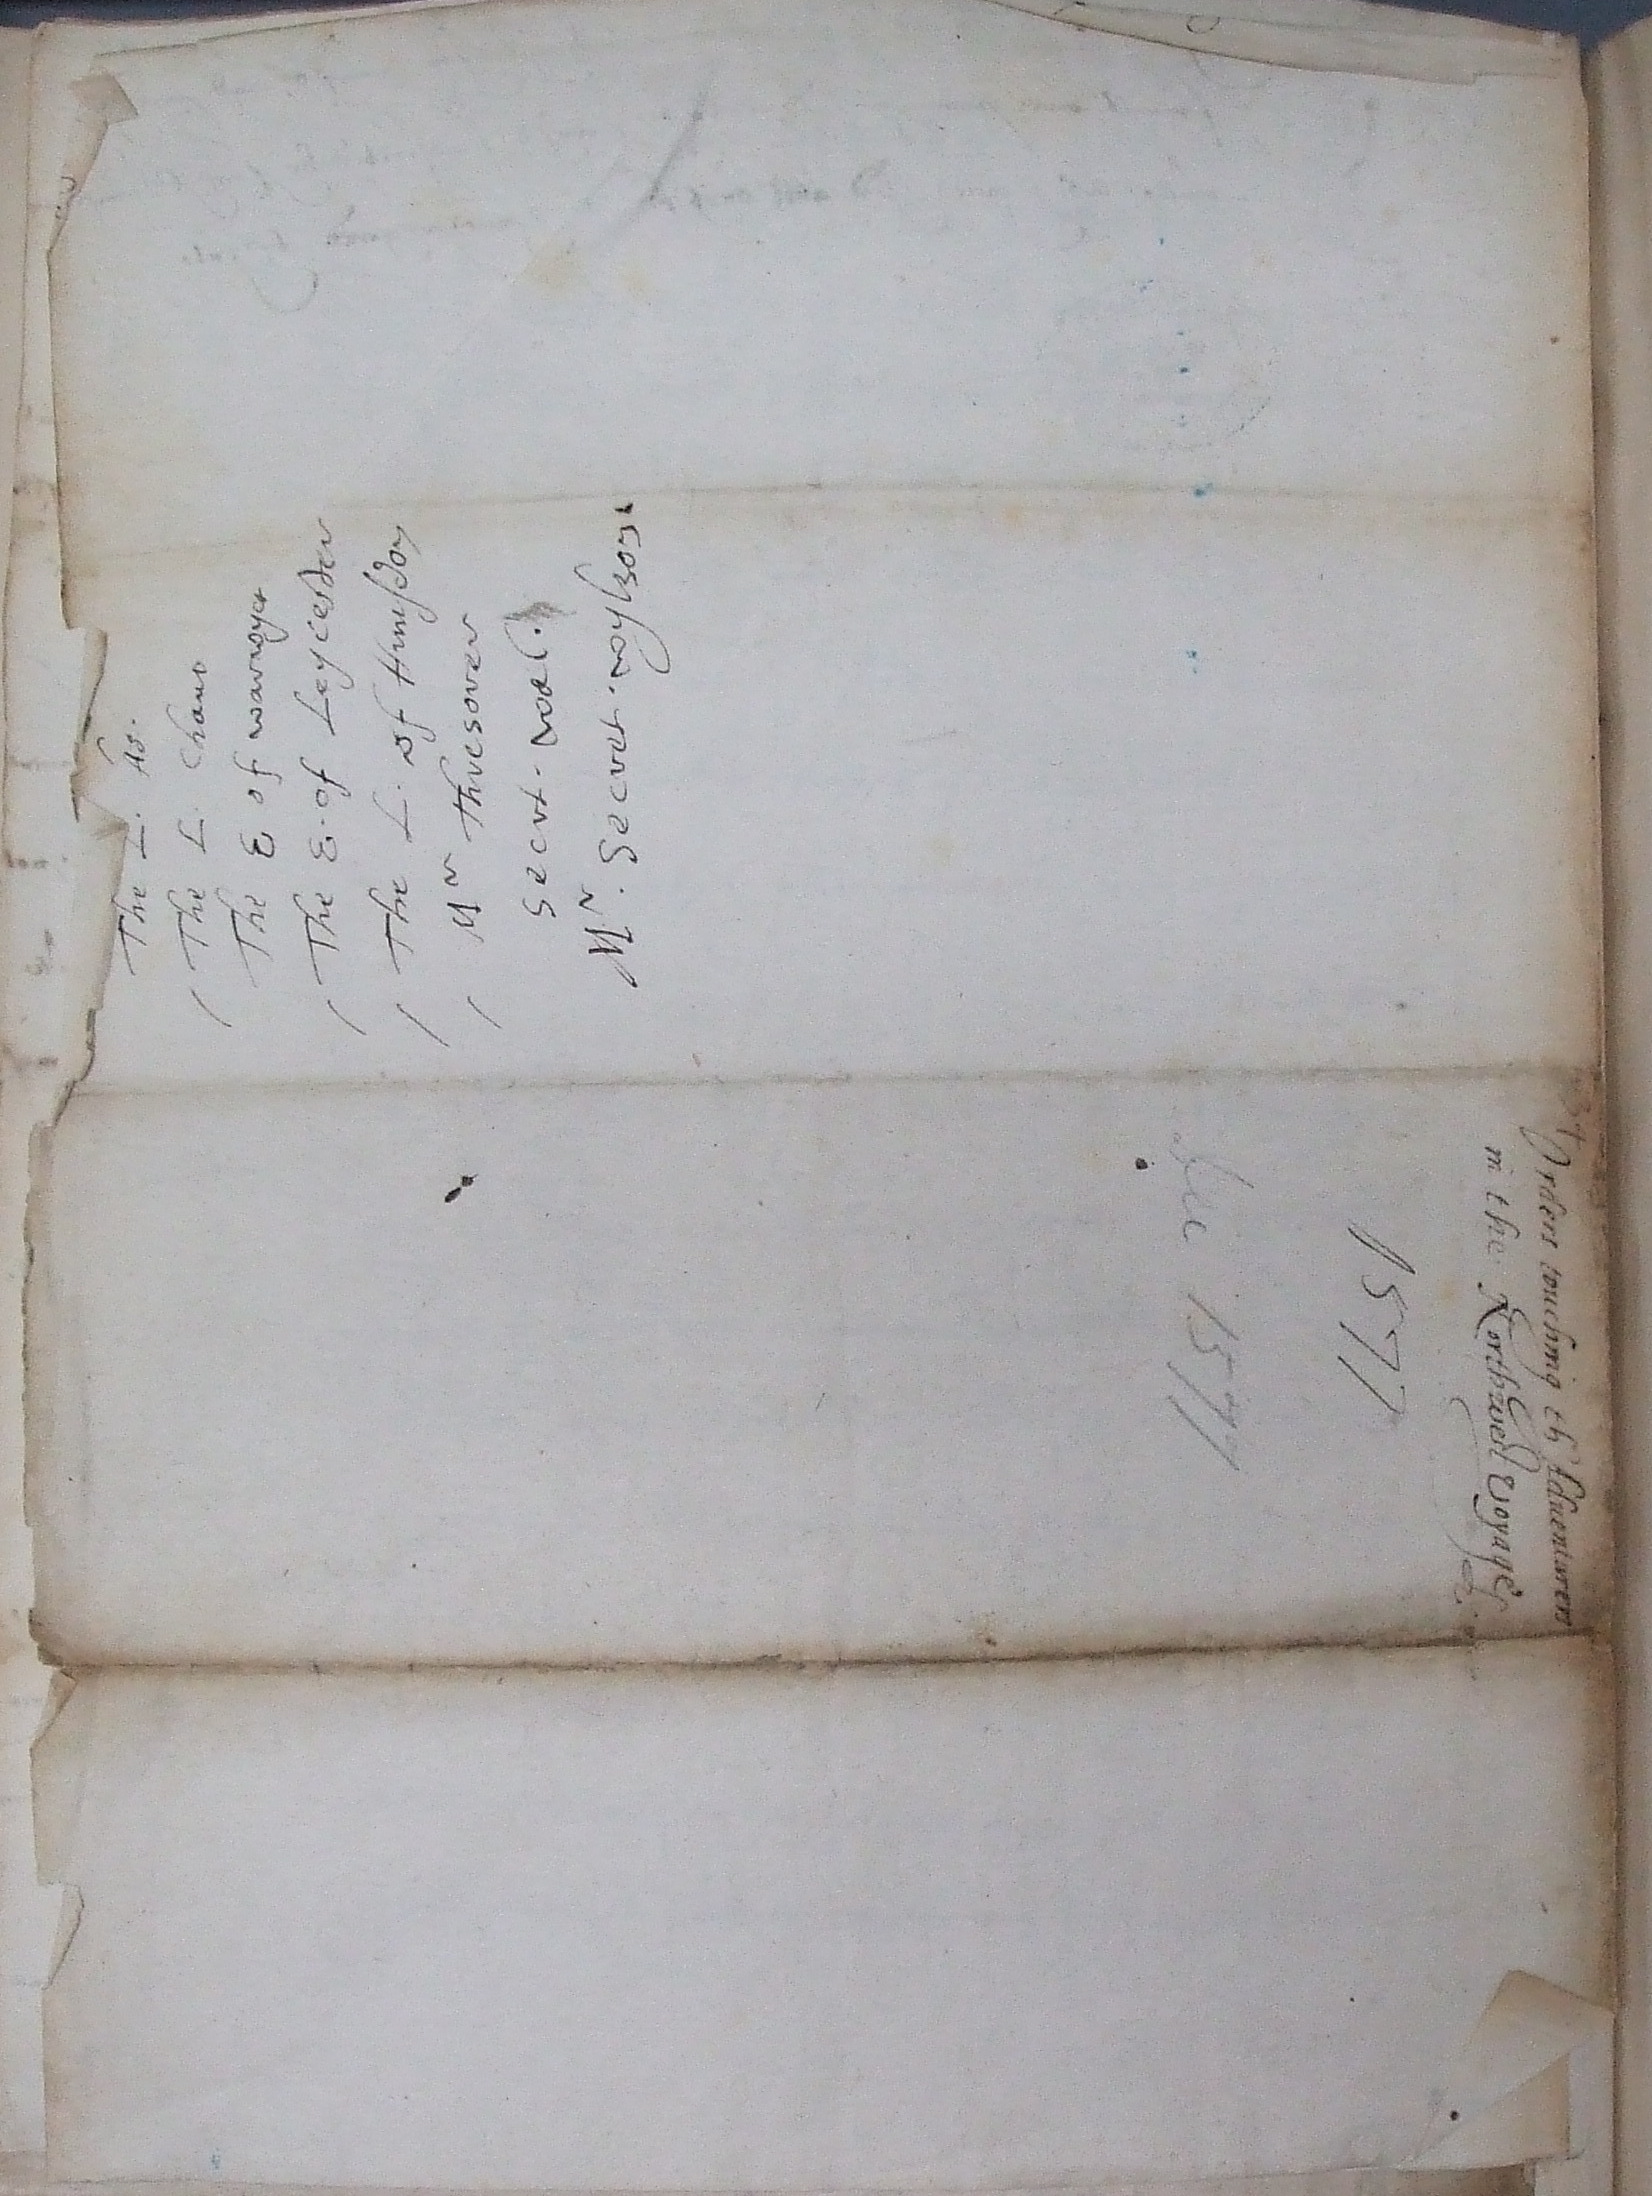 The L. Ad.
/ The L. Cham
The E of warwyck
/ The E. of Leycester
/ The L. of Hunsdon
/ Mr Thresorer
Secret. wal.
Mr. Secret. wylson
Orders touching th Aduenturers
in the Northwest Voyage
1577
1577